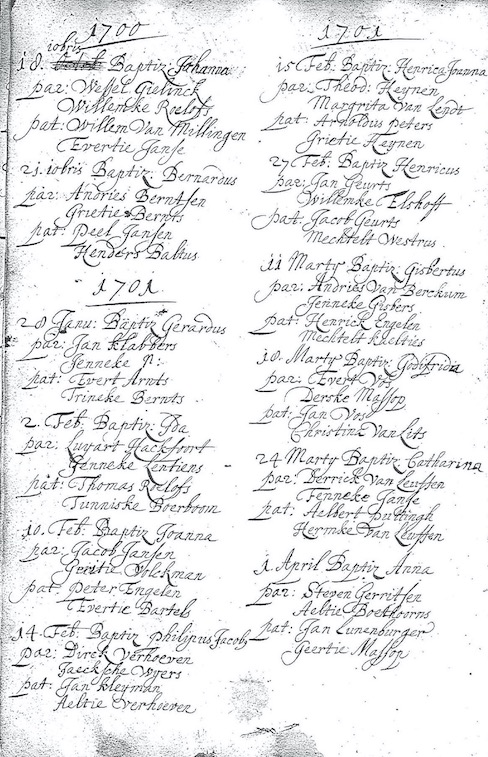 1700
10bris
18. Baptiz: Johanna
par: Wessel Gielinck
Willemke Roelofs
pat: Willem Van Millingen
Evertie Janse
21. 10bris Baptiz: Bernardus
par: Andries Berntsen
Grietie Bernts
pat: Peel Jansen
Henders Baltus
1701
28 Janu: Baptiz Gerardus
par: Jan Klabbers
Jenneke
pat: Evert Arnts
Trineke Bernts
2. Feb. Baptiz: Ida
par: Luyart Hackfoort
Jenneke Lentiens
pat: Thomas Roelofs
Tunniske Boerboom
10. Feb. Baptiz Joanna
par: Jacob Jansen
Geritie Volckman
pat: Peter Engelen
Evertie Bartels
14. Feb. Baptiz philipus Jacob
par: Dirck Verhoeven
Jaecksche Wyers
pat: Jan Kleyman
Aeltie Verhoeven
1701
15 Feb. Baptiz: Henrica Joanna
par: Theod: Heynen
Margrita Van Lendt
pat: Arnoldus peters
Grietie Heynen
27 Feb. Baptiz Henricus
par: Jan Geurts
Willemke Elshoff
pat: Jacob Geurts
Mechtelt Westrus
11 Marty Baptiz: Gisbertus
par: Andries Van Berckum
Jenneke Gisbers
pat: Henrick Engelen
Mechtelt
18. Marty Baptiz: Godefrida
par: Evert Vos
Derske Massop
pat: Jan Vos
Christina Van Lits
24 Marty Baptiz Catharina
par: Derrick Van Leussen
Fenneke Janse
pat: Aelbert
Hermke Van Leussen
1. April Baptiz Anna
par: Steven Gerritsen
Aeltie Boethoorns
pat: Jan Lunenburger
Geertie Massop